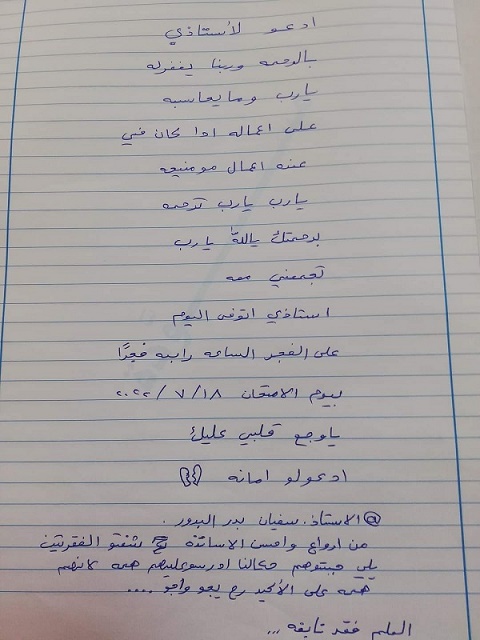 ادعو لأستاذي
بالرحمه وربنا يغفرله
يارب وما يحاسبه
على اعماله اذا كان في
عنده اعمال مو منيحه
يارب يارب ترحمه
برحمتك ياالله يارب
تجمعني معه
استاذي اتوفى اليوم
على الفجر الساعه رابعه فجرًا
بيوم الامتحان ٢٠٢٢/٧/١٨
ياوجع قلبي عليك
ادعولو امانه
@الاستاذ. سفيان بدر البدور.
من ارواع وافس الاساتذة شفتو الفقرتين
يلي جبتوهم حكالنا ادرسو عليهم همه لانهم
همه على الأكيد رح يجو واجو ....
العلم فقد تابقه ...